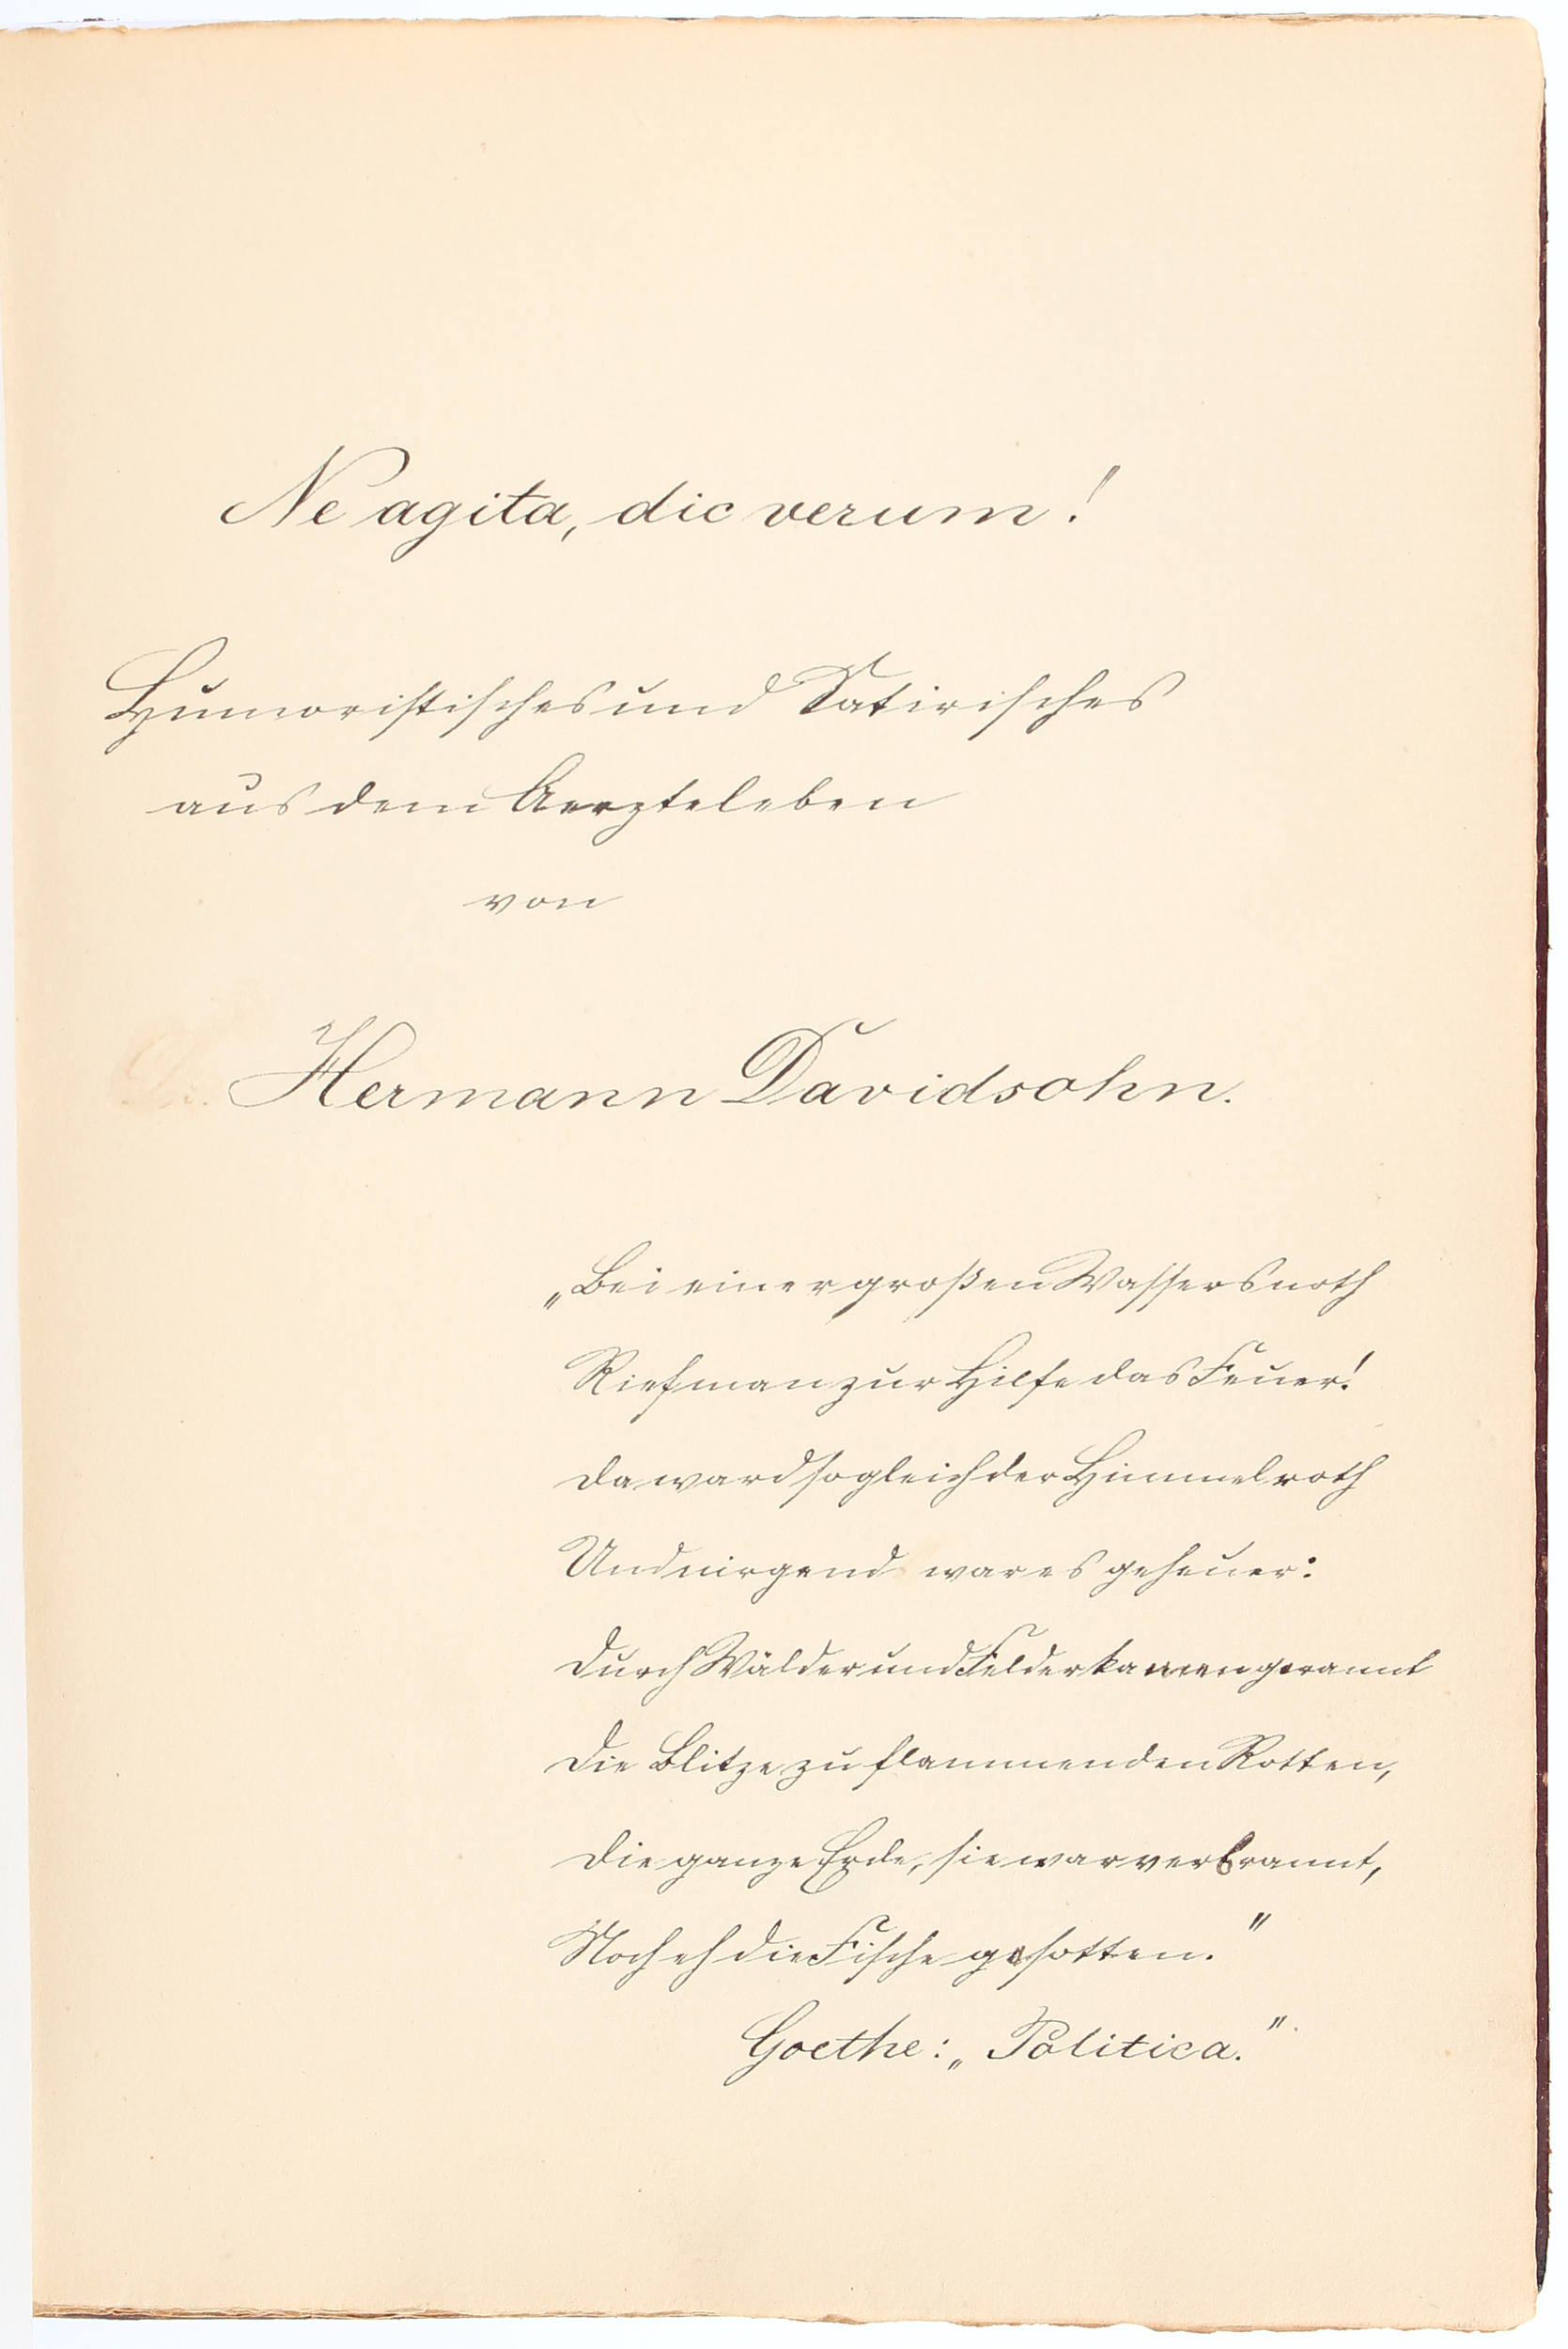 Ne agita, dic verum!
Humoristisches und Satirisches
aus dem Aerzteleben
von
Hermann Davidsohn.
„Bei einer großen Wassersnoth
Rief man zur Hilfe das Feuer!
Da ward sogleich der Himmel roth
Und nirgend war es geheuer:
Durch Wälder und Felder kamen gerannt
Die Blitze zu flammenden Rotten,
Die ganze Erde, sie war verbrannt,
Noch eh die Fische gesotten."
Goethe: „Politica."